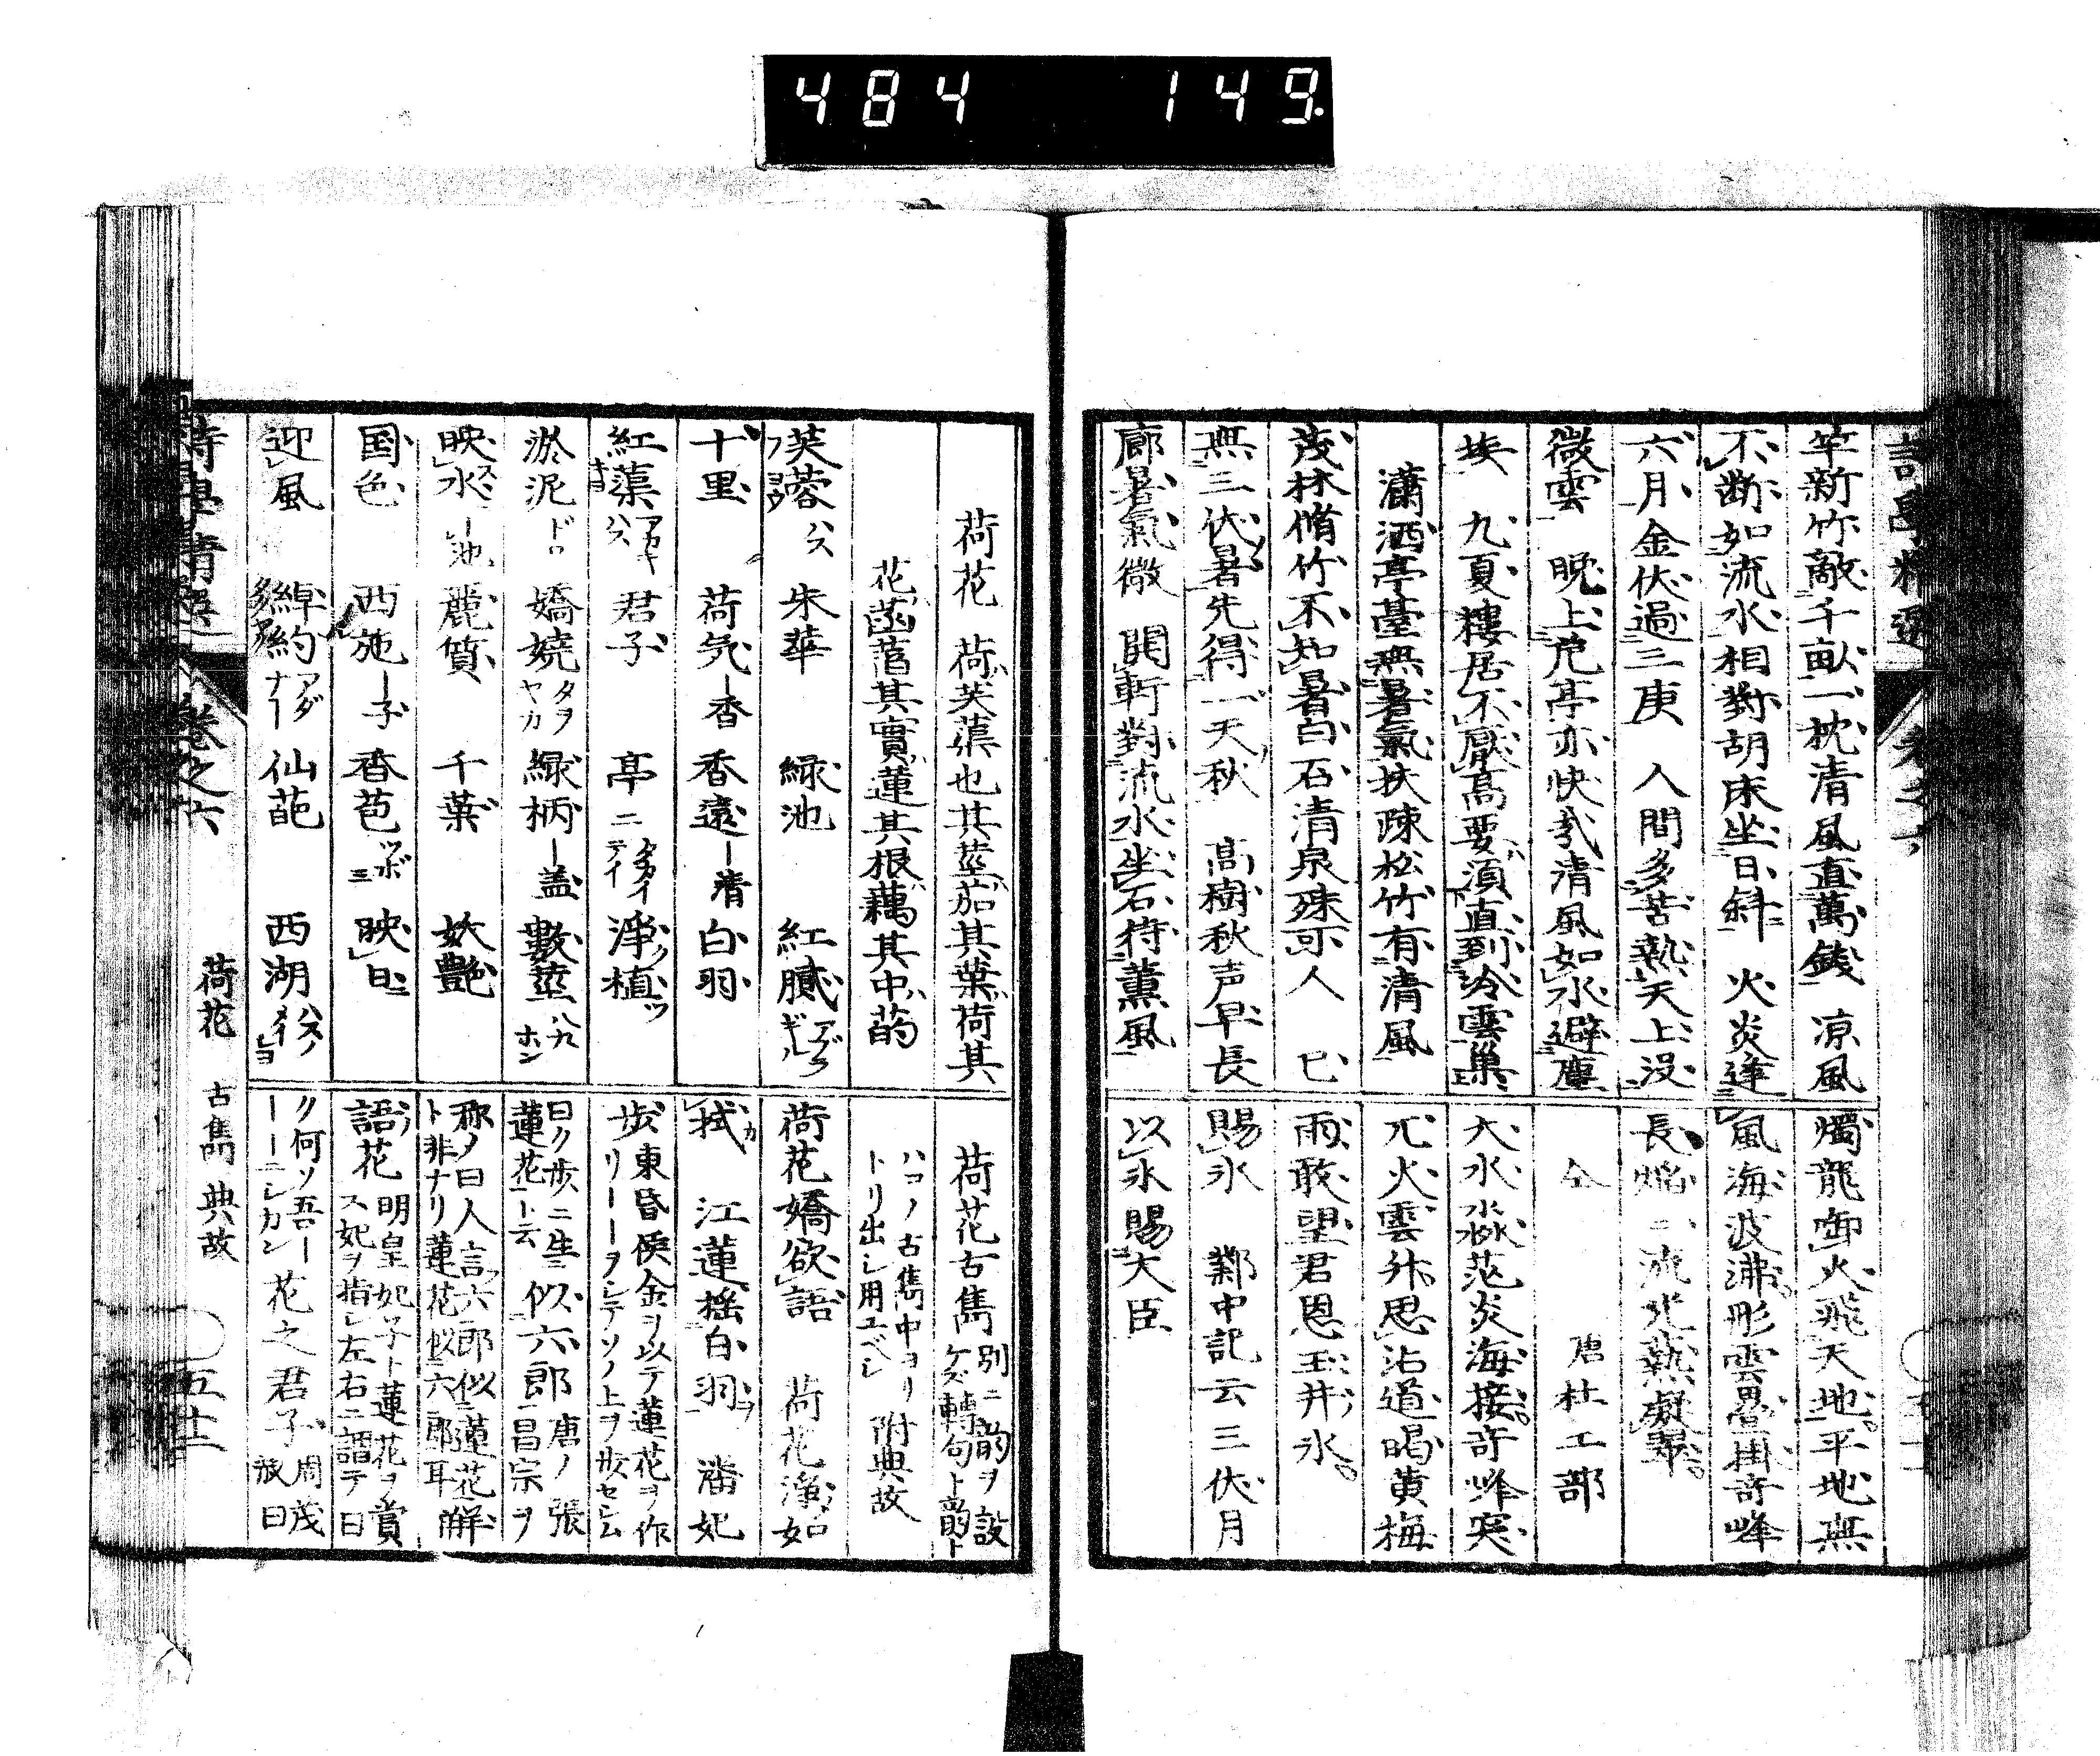 484 149
竿新竹敵千畝一枕清風直萬錢 凉風
不断如流水相對胡床坐日斜 火炎逢
六月金伏過三庚 人間多苦熱天上没
微雲 晩上荒亭亦快哉清風如水避塵
埃 九夏樓居不厭高要須直到冷雲巢
瀟洒亭臺無暑氣扶疎松竹有清風
茂林脩竹不知暑白石清泉殊可人 已
無三伏暑先得一天秋 高樹秋声早長
廊暑氣微 開軒對流水坐石待薫風
燭龍啣火飛天地平地無
風海波沸彤雲畳掛奇峰
長焔二流光熱凝翠
仝 唐杜工部
大水淼茫炎海接奇峰突
兀火雲升思沾道暍黄梅
雨敢望君恩玉井氷
賜氷 鄴中記云三伏月
以氷賜大臣
荷花 荷芙蕖也其莖茄其葉荷其
花菡萏其實蓮其根藕其中菂
芙蓉 フヨウ ハス 朱華 緑池 紅膩 アブラギル
十里 荷気 ー香 香遠 ー清 白羽
紅蕖 アカキハス 君子 亭二 淨植
淤泥 ドロ 嬌嬈 タヲヤカ 緑柄 ー盖 數莖 八九ホン
映水 ー池 麗質 千葉 妖艶
国色 西施 ー子 香苞 ツボミ 映日
迎風 綽約 アダナー 仙葩 西湖 ハスノメイシヨ
荷花古雋 別ニ韵ヲ設ケズ轉句ト韵ト
ハコノ古雋中ヨリトリ出シ用エベシ 附典故
荷花嬌欲語 荷花淨如
拭 江蓮揺白羽 潘妃
歩 東昏侯金ヲ以テ蓮花ヲ作リーーヲシテソノ上ヲ歩セシム
曰ク歩々ニ生蓮花ト云 似六郎 唐ノ張昌宗ヲ
称ノ曰人言六郎似蓮花ト非ナリ蓮花似六郎耳 解
語花 明皇妃子ト蓮花ヲ賞ス妃ヲ指シ左右ニ謂テ曰
ク何ソ吾ーーーニシカン 花之君子 周茂叔曰
詩學精選 卷之六 荷花 古雋 典故